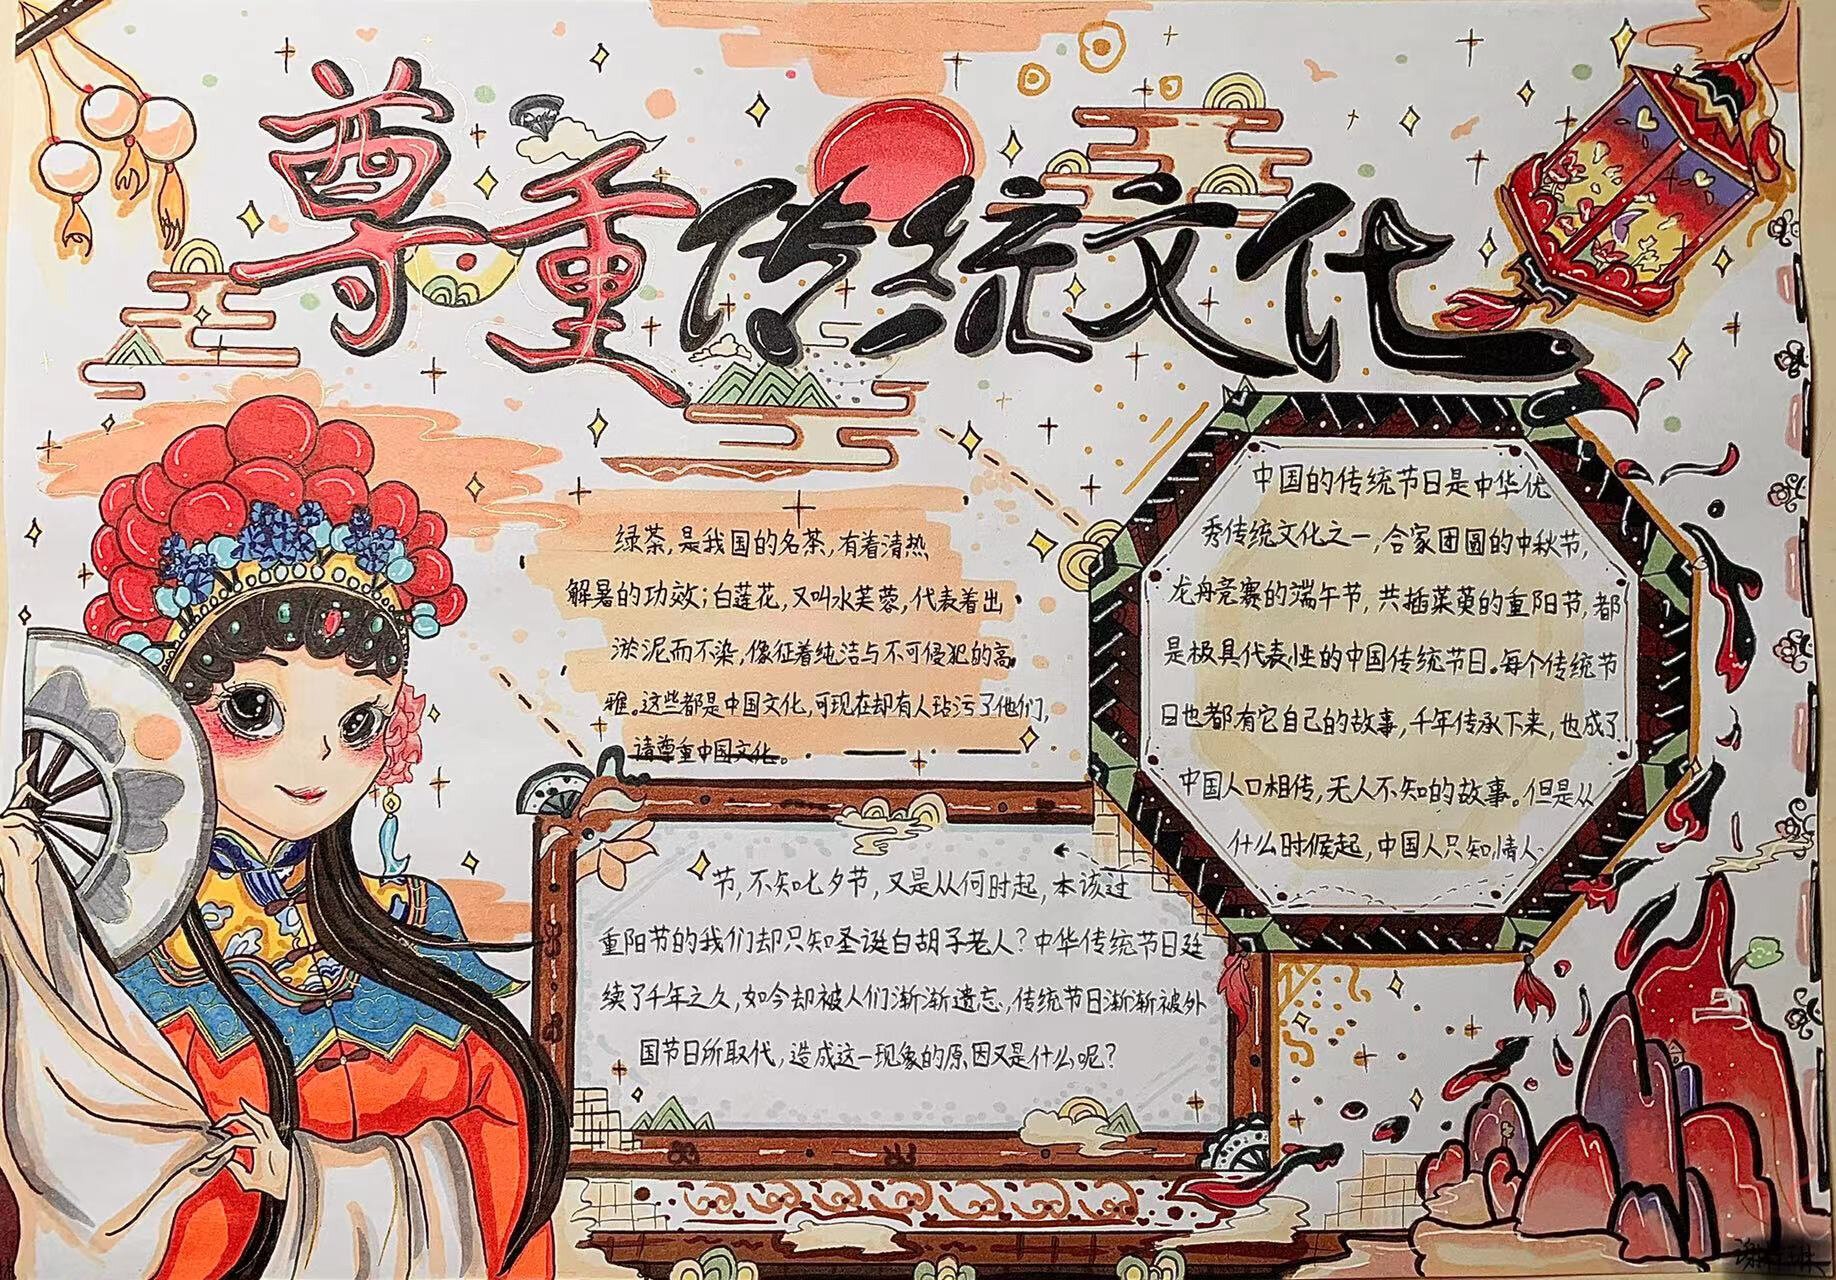 尊重传统文化
绿茶,是我国的名茶,有着清热
解暑的功效;白莲花,又叫水芙蓉,代表着出
淤泥而不染,像征着纯洁与不可侵犯的高
雅。这些都是中国文化,可现在却有人玷污了他们,
请尊重中国文化。
中国的传统节日是中华优
秀传统文化之一,合家团圆的中秋节,
龙舟竞赛的端午节,共插茱萸的重阳节,都
是极具代表性的中国传统节日。每个传统节
日也都有它自己的故事,千年传承下来,也成了
中国人口相传,无人不知的故事。但是从
什么时候起,中国人只知情人
节,不知七夕节,又是从何时起,本该过
重阳节的我们却只知圣诞白胡子老人?中华传统节日延
续了千年之久,如今却被人们渐渐遗忘,传统节日渐渐被外
国节日所取代,造成这一现象的原因又是什么呢?